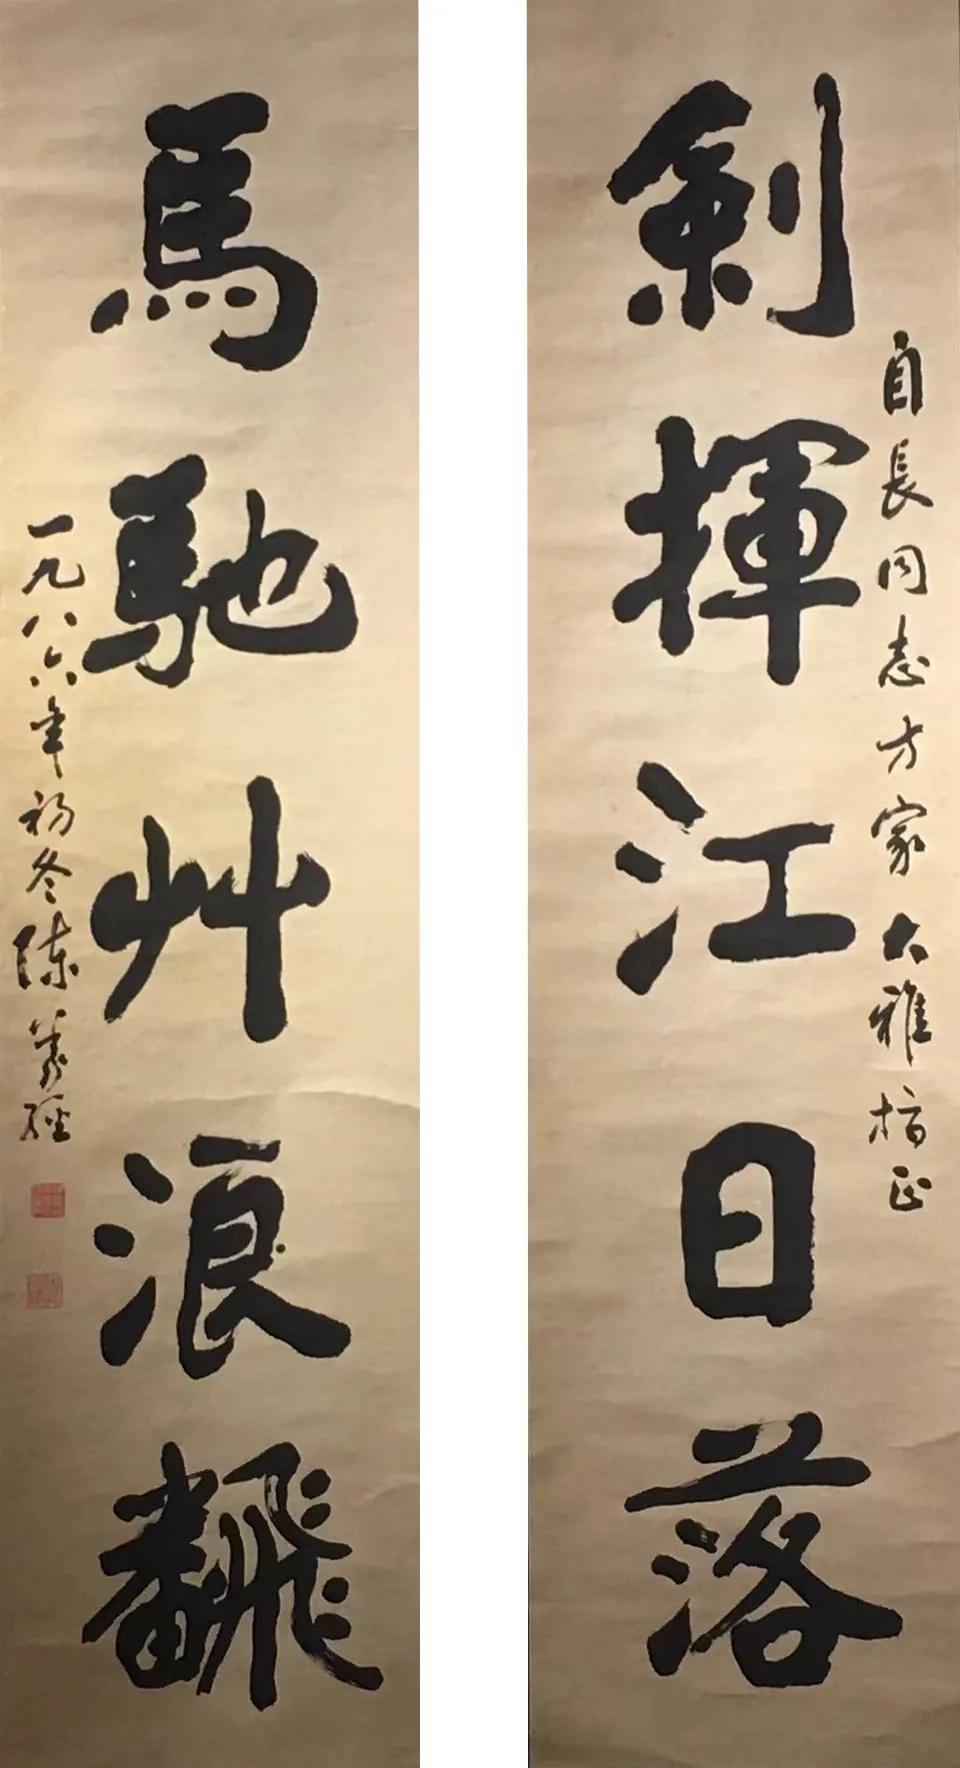 劍揮江日落
自長同志方家大雅指正
馬馳艸浪飜
一九八六年初冬陳義經